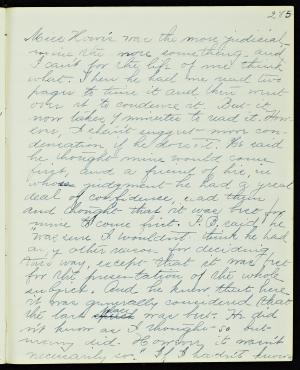 285
Miss Howe's was the more judicial,
mine the more something - and
I can't for the life of me think
what. Then he had me read two
pages to time it and then went
over it to condense it. But it
now takes 7 minutes to read it. How-
ever, I shan't suggest more con-
densation if he doesn't. He said
he thought mine would come
first, and a friend of his, in
whose judgment he had a great
deal of confidence, read them
and thought that it was best for
mine to come first. J.B. said he
was sure I wouldn't think he had
any other reason for deciding
this way except that it was best
for the presentation of the whole
subject. And he knew that here
it was generally considered that
the last place was best. He did
n't know as I thought so but
many did. However it wasn't
necessarily so." If I hadn't known